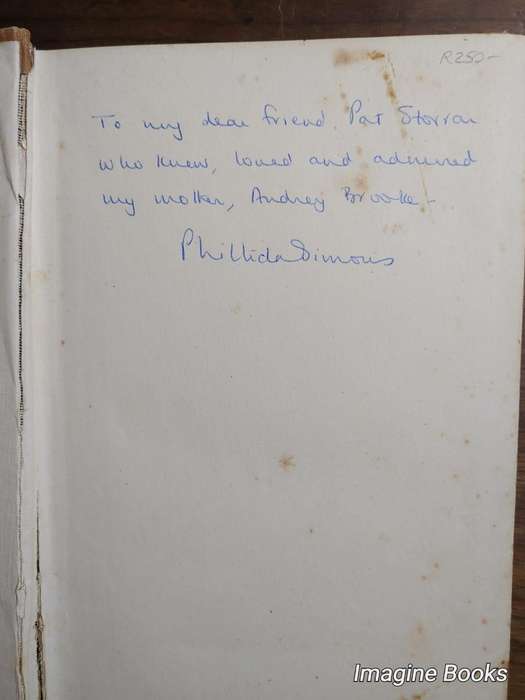 R250-
To my dear friend, Pat Storrar
who knew, loved and admired
my mother, Audrey Brooke -
Phillida Simons
Imagine Books